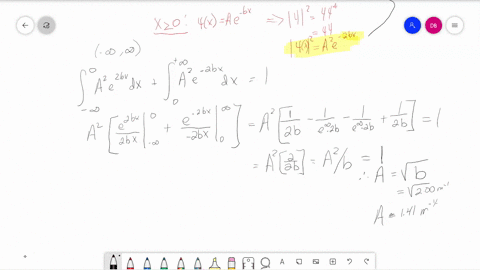 x≥0: ψ(x)=Ae^-bx => |ψ|² = ψψ*
= ψψ
|ψ(x)|² = A²e^-2bx
(-∞, ∞)
∫_-∞^0 A²e^2bx dx + ∫_0^+∞ A²e^-2bx dx = 1
A² [ e^2bx/2bx |_-∞^0 + e^-2bx/-2bx |_0^∞ ] = A² [ 1/2b - 1/e^∞2b - 1/e^∞2b + 1/2b ] = 1
= A² [2/2b] = A²/b = 1
∴ A = √b
= √200 m⁻¹
DB